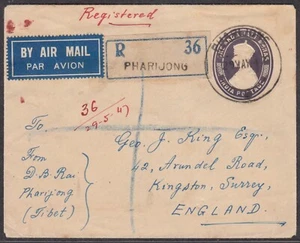 Registered
BY AIR MAIL
PAR AVION
R 36
PHARIJONG
36
29-5-47
To,
Geo. J. King Esqr.,
42, Arundel Road,
Kingston, Surrey,
ENGLAND.
From
D.B. Rai
Pharijong
(Tibet)